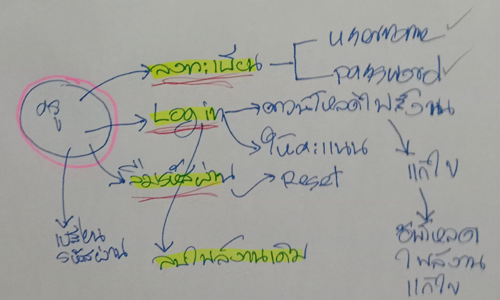 username
ลงทะเบียน
password
ครู
Login
ดาวน์โหลดไฟล์งาน
ให้คะแนน
แก้ไข
ลืมรหัสผ่าน
Reset
เปลี่ยน
รหัสผ่าน
ลบไฟล์งานเดิม
อัพโหลด
ไฟล์งาน
แก้ไข